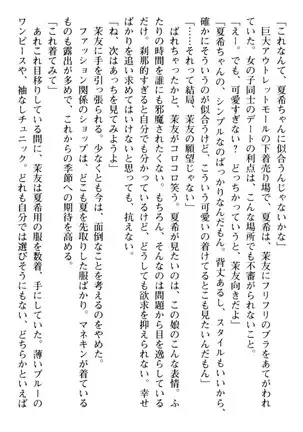 「これなんて、夏希ちゃんに似合うんじゃないかな」
巨大アウトレットモールの下着売り場で、夏希は、茉友にフリフリのブラをあてがわれ
ていた。女の子同士のデートの利点は、こんな場所でも不審がられないことだ。
「えー。でも、可愛すぎない? どっちかっていうと、茉友向きだよ」
「夏希ちゃん、シンプルなのばっかりなんだもん。背丈あるし、スタイルもいいから、
確かにそういうのが似合うけど、こういう可愛いの着けてるとこも見たいんだもん」
「……それって結局、茉友の願望じゃない」
ばれちゃったかと、茉友がコロコロ笑う。夏希が見たいのは、この娘のこんな表情。ふ
たりの時間を誰にも邪魔されたくない。もちろん、そんなのは問題から目を逸らしている
だけ。刹那的すぎると自分でも分かっているけど、どうしても欲求を抑えられない。幸せ
ばかりを追い求めてはいけないと思っても、抗えない。
「ね、次はあっちを見てみようよ」
茉友に手を引っ張られる。少なくとも今は、面倒なことを考えるのをやめた。
ファッション関係のショップは、どこも夏を先取りした服ばかり。マネキンが着ている
ものも露出が多めで、これからの季節への期待を高める。
「これ着てみて」
あれこれ目移りしている間に、茉友は夏希用の服を数着、手にしていた。薄いブルーの
ワンピースや、袖なしチュニック。どれも自分では選びそうにもない、どちらかといえば